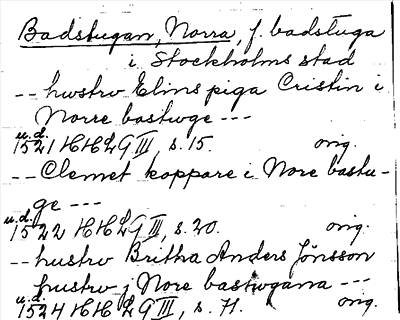 Badstugan, Norra, f. badstuga
i Stockholms stad
-- hwstrv Elins piga Cristin i
Norre bastwge ---
u.d.
1521 HH2G III, s. 15. orig.
-- Clemet koppare i Nore bastu-
ge ---
u.d.
1522 HH2G III, s. 20. orig.
-- hustrv Britha Anders Jönsson
hustrv j Nore bastwganna ---
u.d.
1524 HH2G III, s. 71. orig.